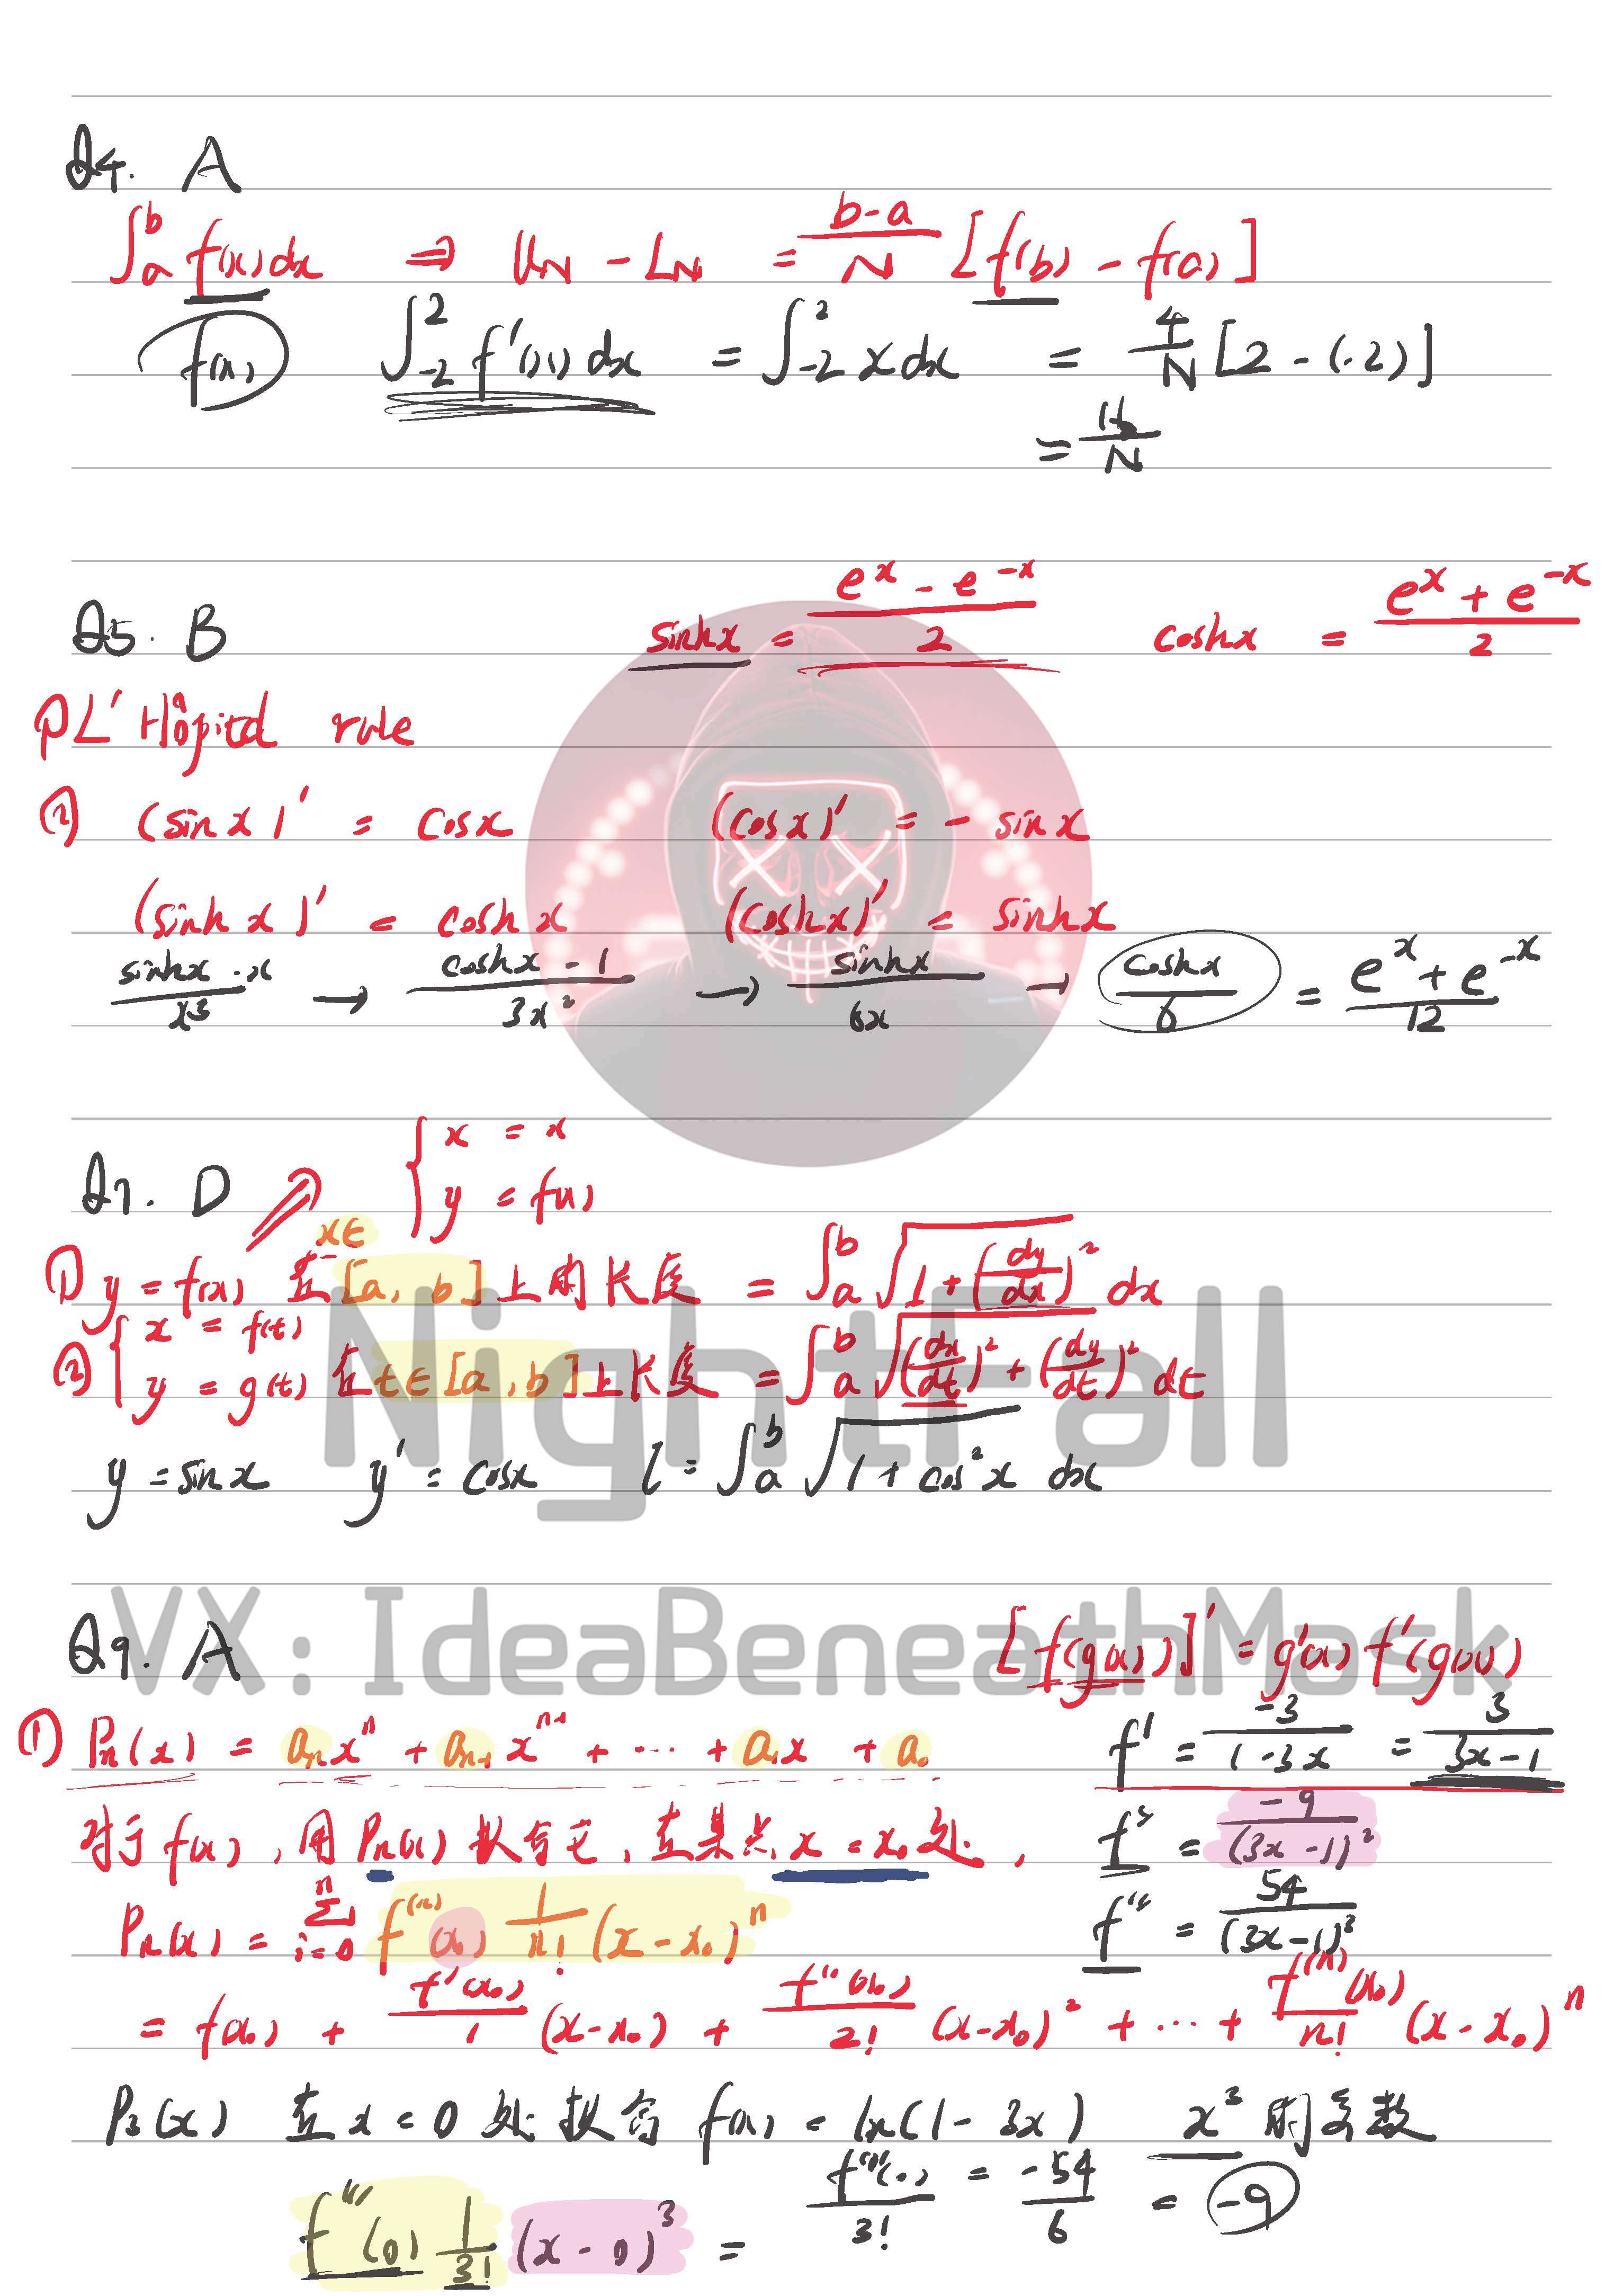 Q4. A
∫_a^b f(x) dx ⇒ U_N - L_N = (b-a)/N [f(b) - f(a)]
f(x) ∫_{-2}^2 f'(x) dx = ∫_{-2}^2 x dx = 4/N [2 - (-2)]
= 16/N
Q5. B sinhx = (e^x - e^{-x})/2 coshx = (e^x + e^{-x})/2
① L'Hôpital rule
② (sin x)' = cosx (cosx)' = - sinx
(sinh x)' = cosh x (coshx)' = sinhx
(sinhx - x)/x^3 → (coshx - 1)/3x^2 → sinhx/6x → coshx/6 = (e^x + e^{-x})/12
Q7. D { x = x
y = f(x)
① y = f(x) 在 x∈[a, b] 上的长度 = ∫_a^b √(1 + (dy/dx)^2) dx
② { x = f(t)
y = g(t) 在 t∈[a, b] 上长度 = ∫_a^b √((dx/dt)^2 + (dy/dt)^2) dt
NightFall
y = sinx y' = cosx l = ∫_a^b √(1 + cos^2 x) dx
VX: IdeaBeneathMask
Q9. A [f(g(x))]' = g'(x) f'(g(x))
① P_n(x) = a_n x^n + a_{n-1} x^{n-1} + ... + a_1 x + a_0 f' = -3/(1-3x) = 3/(3x-1)
对于 f(x), 用 P_n(x) 拟合它, 在某点 x = x_0 处, f'' = -9/(3x-1)^2
P_n(x) = Σ_{i=0}^n f^{(n)}(x_0) 1/n! (x-x_0)^n f''' = 54/(3x-1)^3
= f(x_0) + f'(x_0)/1 (x-x_0) + f''(x_0)/2! (x-x_0)^2 + ... + f^{(n)}(x_0)/n! (x-x_0)^n
P_3(x) 在 x=0 处拟合 f(x) = ln(1-3x) x^3 的系数
f'''(0) 1/3! (x-0)^3 = f'''(0)/3! = -54/6 = -9